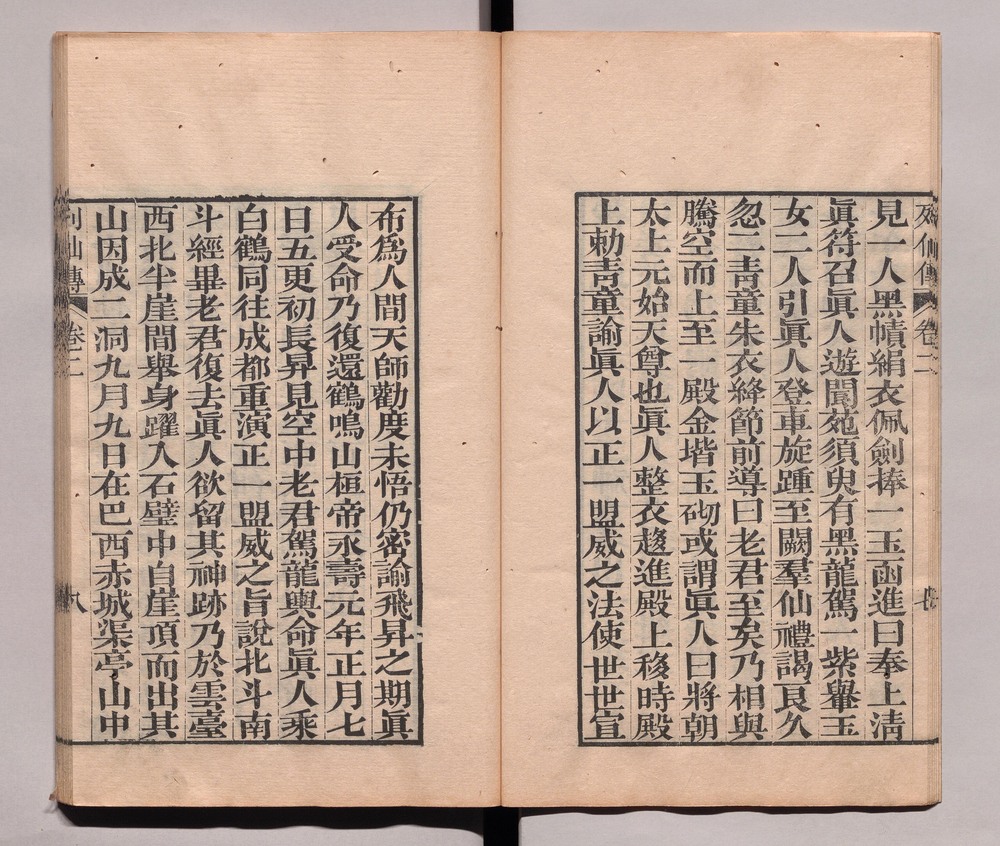 列仙傳 卷二
見一人黑幘絹衣佩劍捧一玉函進曰奉上清
眞符召眞人遊閬苑須臾有黑龍駕一紫轝玉
女二人引眞人登車旋踵至闕羣仙禮謁良久
忽二青童朱衣絳節前導曰老君至矣乃相與
騰空而上至一殿金堦玉砌或謂眞人曰將朝
太上元始天尊也眞人整衣趨進殿上移時殿
上勅青童諭眞人以正一盟威之法使世世宣
布爲人間天師勸度未悟仍密諭飛昇之期眞
人受命乃復還鶴鳴山桓帝永壽元年正月七
日五更初長昇見空中老君駕龍輿命眞人乘
白鶴同往成都重演正一盟威之旨說北斗南
斗經畢老君復去眞人欲留其神跡乃於雲臺
西北半崖間舉身躍入石壁中自崖頂而出其
山因成二洞九月九日在巴西赤城渠亭山中
列仙傳 卷二 八